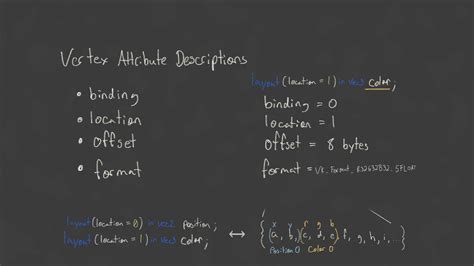 Vertex Attribute Descriptions
• binding
• location
• offset
• format
layout(location = 1) in vec3 color;
binding = 0
location = 1
offset = 8 bytes
format =
layout(location = 0) in vec2 position;
layout(location = 1) in vec3 color;
↔
x y r g b
{a, b, c, d, e, f, g, h, i, ...
Position 0 Color 0